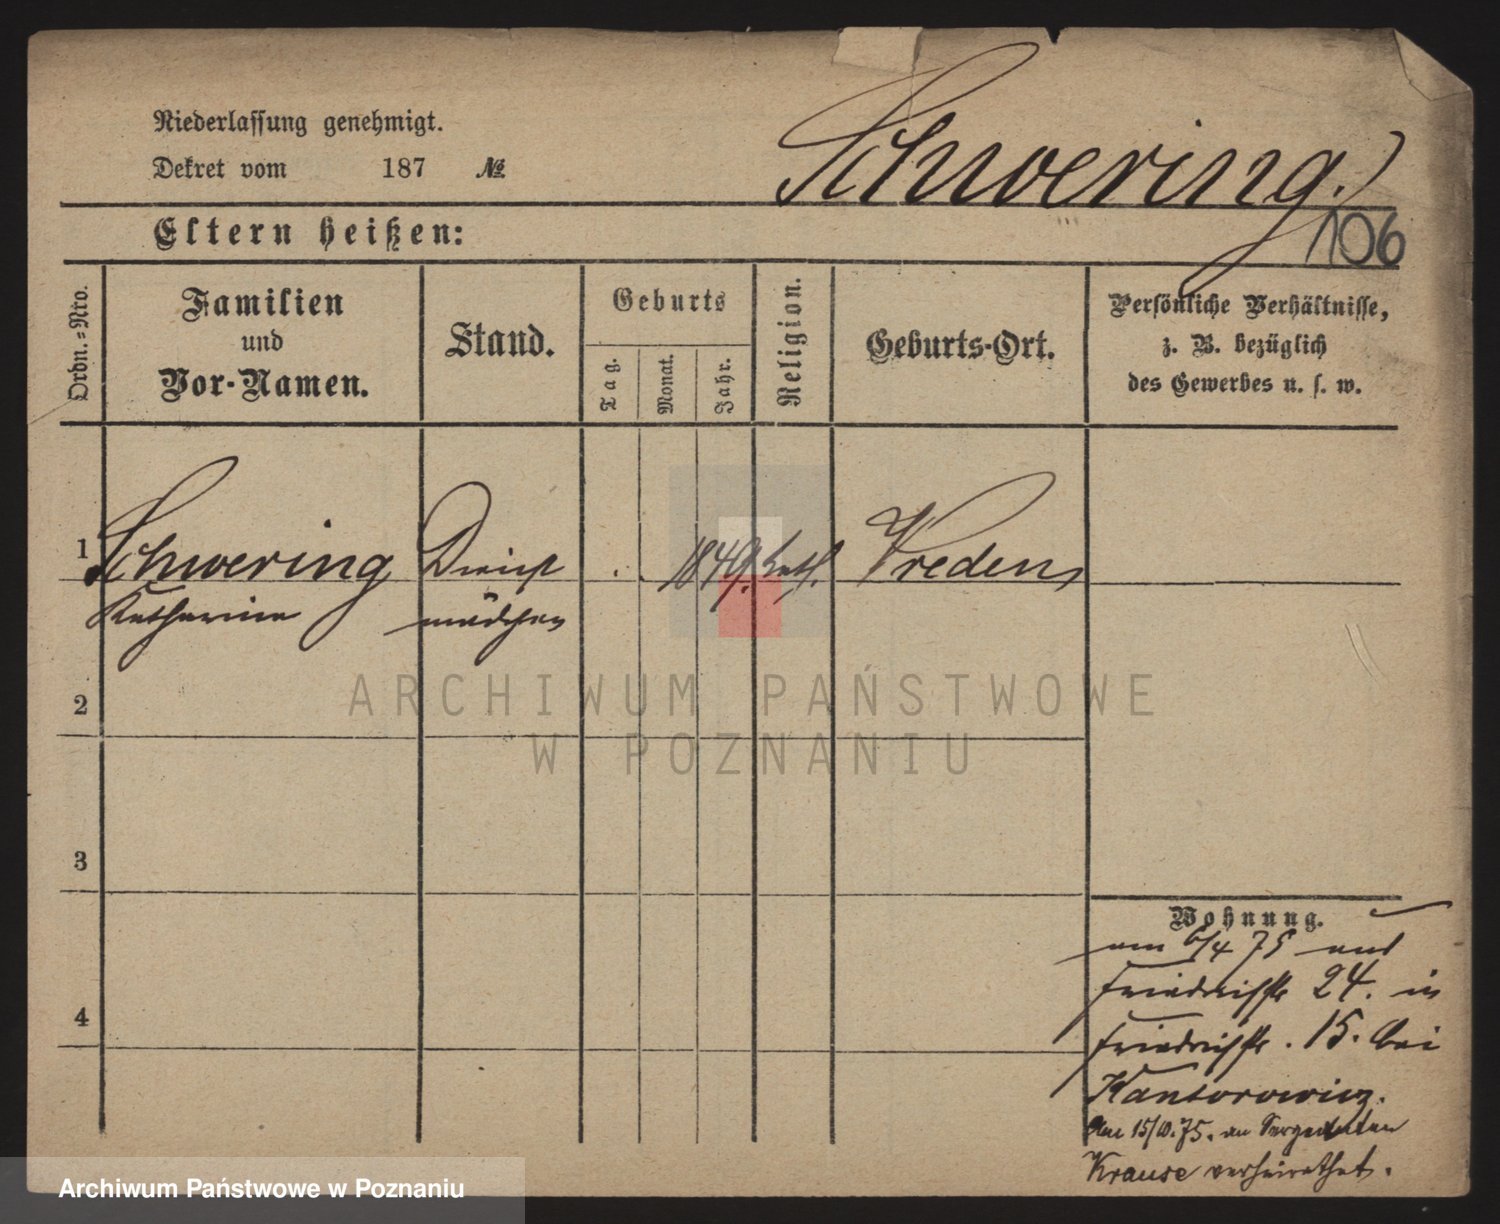 Niederlassung genehmigt.
Dekret vom 187 №
Schwering.
106
Eltern heißen:
Ordn.-Nro.
Familien
und
Vor-Namen.
Stand.
Geburts
Tag.
Monat.
Jahr.
Religion.
Geburts-Ort.
Persönliche Verhältnisse,
z. B. bezüglich
des Gewerbes u. s. w.
1 Schwering Dienst . . 1849. kath. Vreden
Katharina mädchen
2
3
4
Wohnung.
am 6/4 75 aus
Friedrichstr 24. in
Friedrichstr. 15. bei
Kantorowicz.
Am 15/10.75. an Sergeanten
Krause verheirathet.
ARCHIWUM PAŃSTWOWE
W POZNANIU
Archiwum Państwowe w Poznaniu